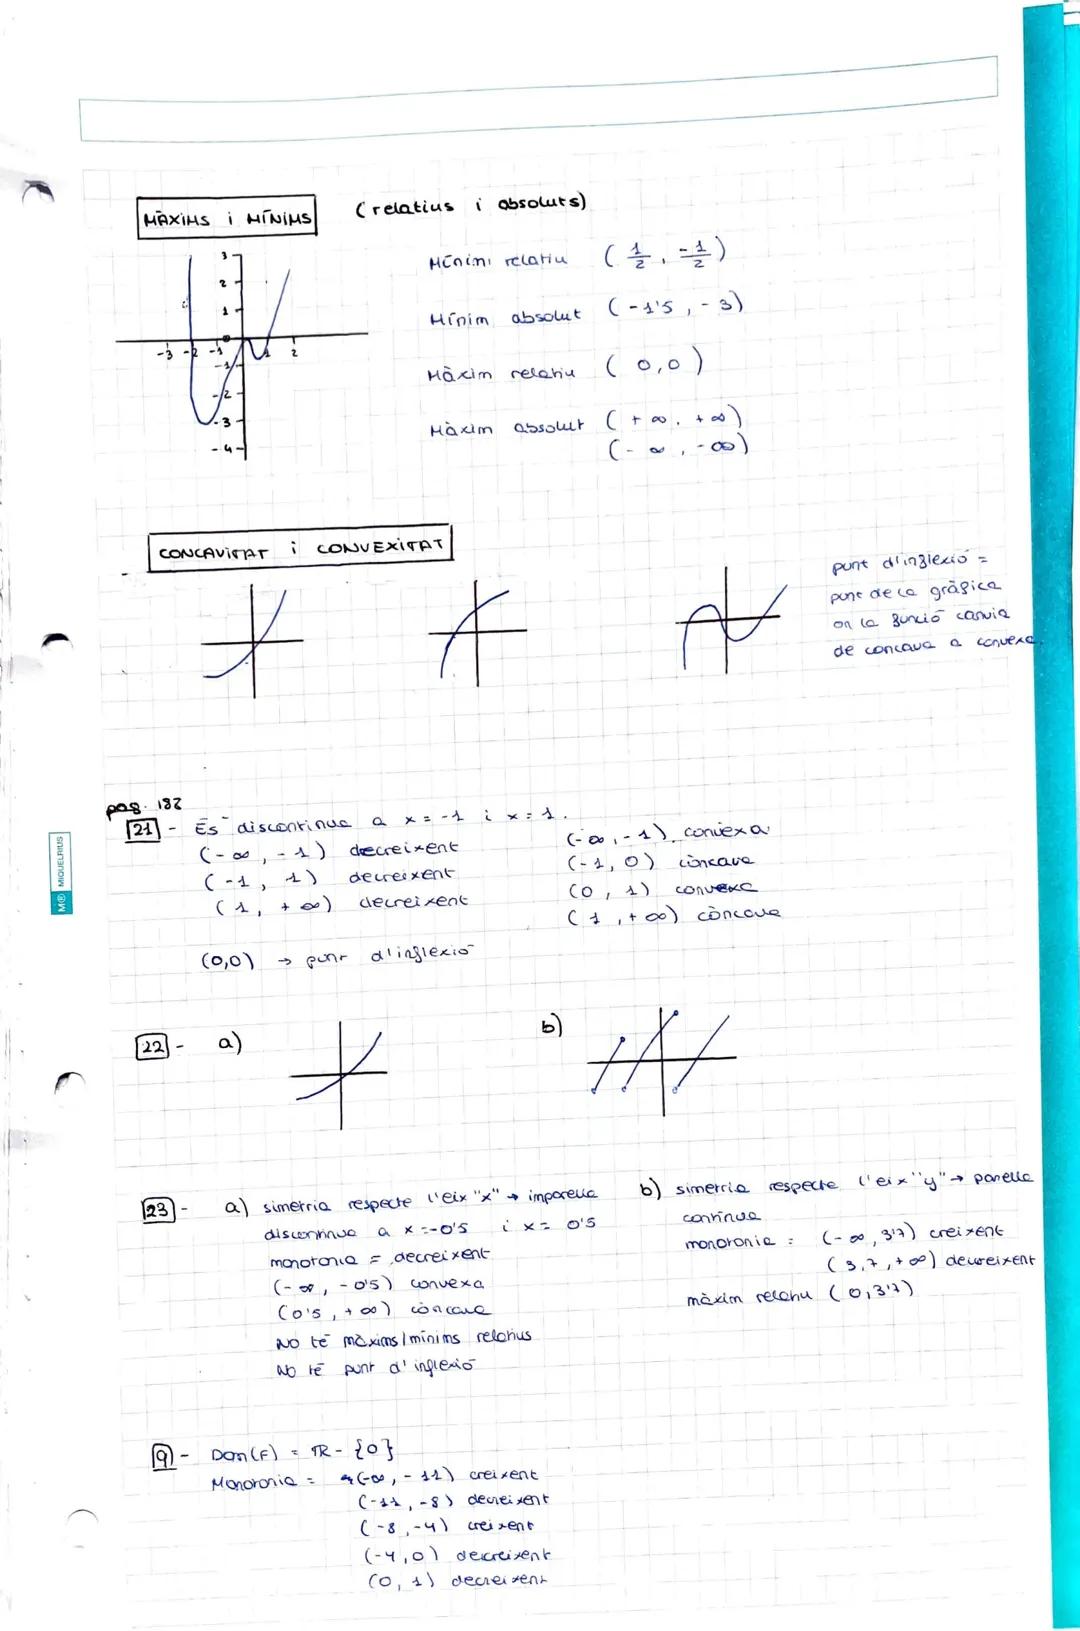 MÀXIMS i MÍNIMS (relatius i absoluts)
3
2
1
0
-3 -2 -1 1 2
-1
-2
-3
-4
Mínim relatiu ( 1/2 , -1/2 )
Mínim absolut ( -1'5 , -3 )
Màxim relatiu ( 0,0 )
Màxim absolut ( +∞ , +∞ )
( -∞ , -∞ )
CONCAVITAT i CONVEXITAT
punt d'inflexió =
punt de la gràfica
on la funció canvia
de concava a convexa
pag. 182
21 - És discontinua a x = -1 i x = 1.
(-∞, -1) decreixent
(-1, 1) decreixent
(1, +∞) decreixent
(-∞, -1) convexa
(-1, 0) còncava
(0, 1) convexa
(1, +∞) còncava
(0,0) → punt d'inflexió
22 - a)
b)
23 - a) simetria respecte l'eix "x" → imparella
discontinua a x = -0'5 i x = 0'5
monotonia = decreixent
(-∞, -0'5) convexa
(0'5, +∞) còncava
No té màxims/mínims relatius
No té punt d'inflexió
b) simetria respecte l'eix "y" → parella
contínua
monotonia : (-∞, 3'7) creixent
(3,7, +∞) decreixent
màxim relatiu (0, 3'7)
9 - Dom(F) = ℝ - {0}
Monotonia = (-∞, -11) creixent
(-11, -8) decreixent
(-8, -4) creixent
(-4, 0) decreixent
(0, 1) decreixent
M® MIQUELRIUS